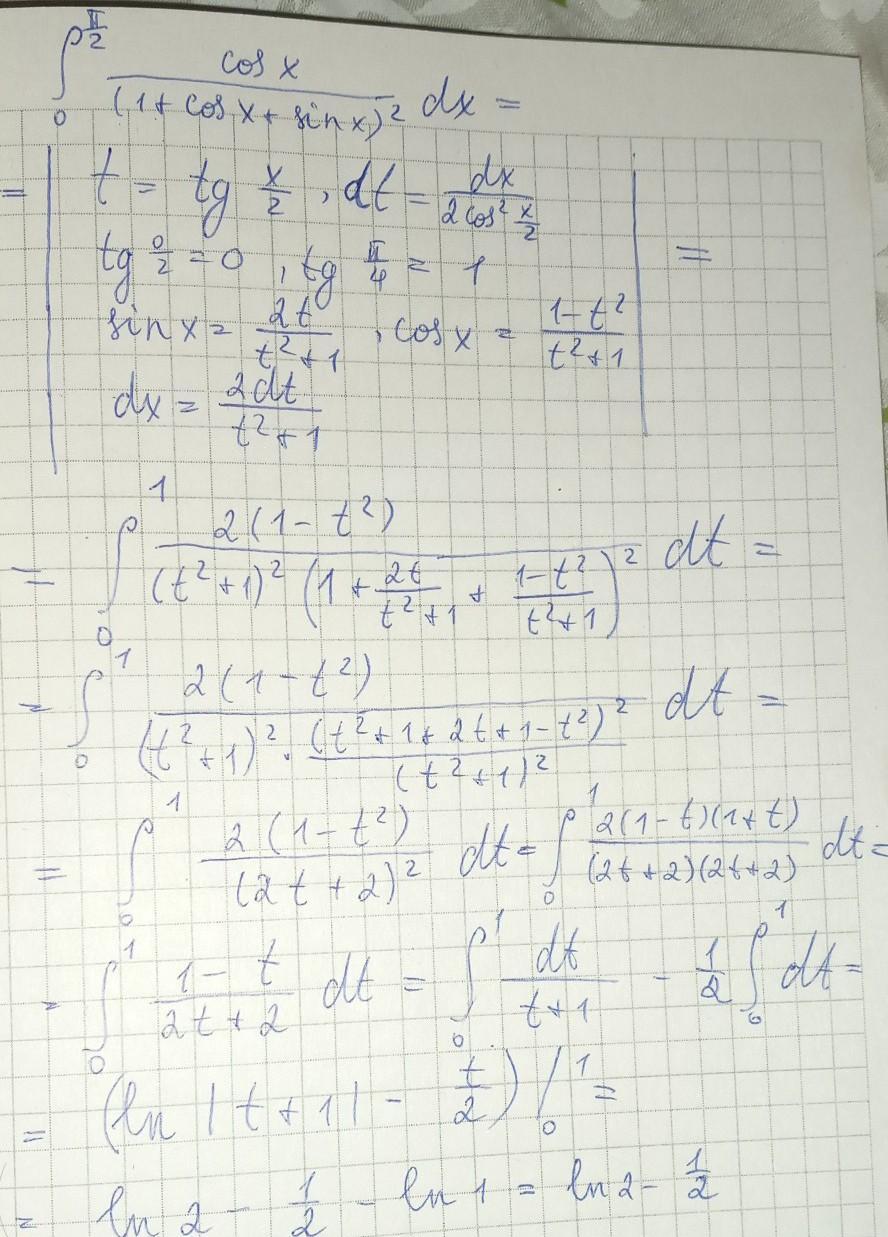 ∫₀^(π/2) cos x / (1 + cos x + sin x)² dx =
= | t = tg x/2 , dt = dx / (2 cos² x/2) | =
tg 0/2 = 0 , tg π/4 = 1
sin x = 2t / (t² + 1) , cos x = (1 - t²) / (t² + 1)
dx = 2dt / (t² + 1)
= ∫₀¹ 2(1 - t²) / ((t² + 1)² (1 + 2t/(t² + 1) + (1 - t²)/(t² + 1))²) dt =
= ∫₀¹ 2(1 - t²) / ((t² + 1)² · (t² + 1 + 2t + 1 - t²)² / (t² + 1)²) dt =
= ∫₀¹ 2(1 - t²) / (2t + 2)² dt = ∫₀¹ 2(1 - t)(1 + t) / ((2t + 2)(2t + 2)) dt =
= ∫₀¹ (1 - t) / (2t + 2) dt = ∫₀¹ dt / (t + 1) - 1/2 ∫₀¹ dt =
= (ln |t + 1| - t/2) |₀¹ =
= ln 2 - 1/2 - ln 1 = ln 2 - 1/2